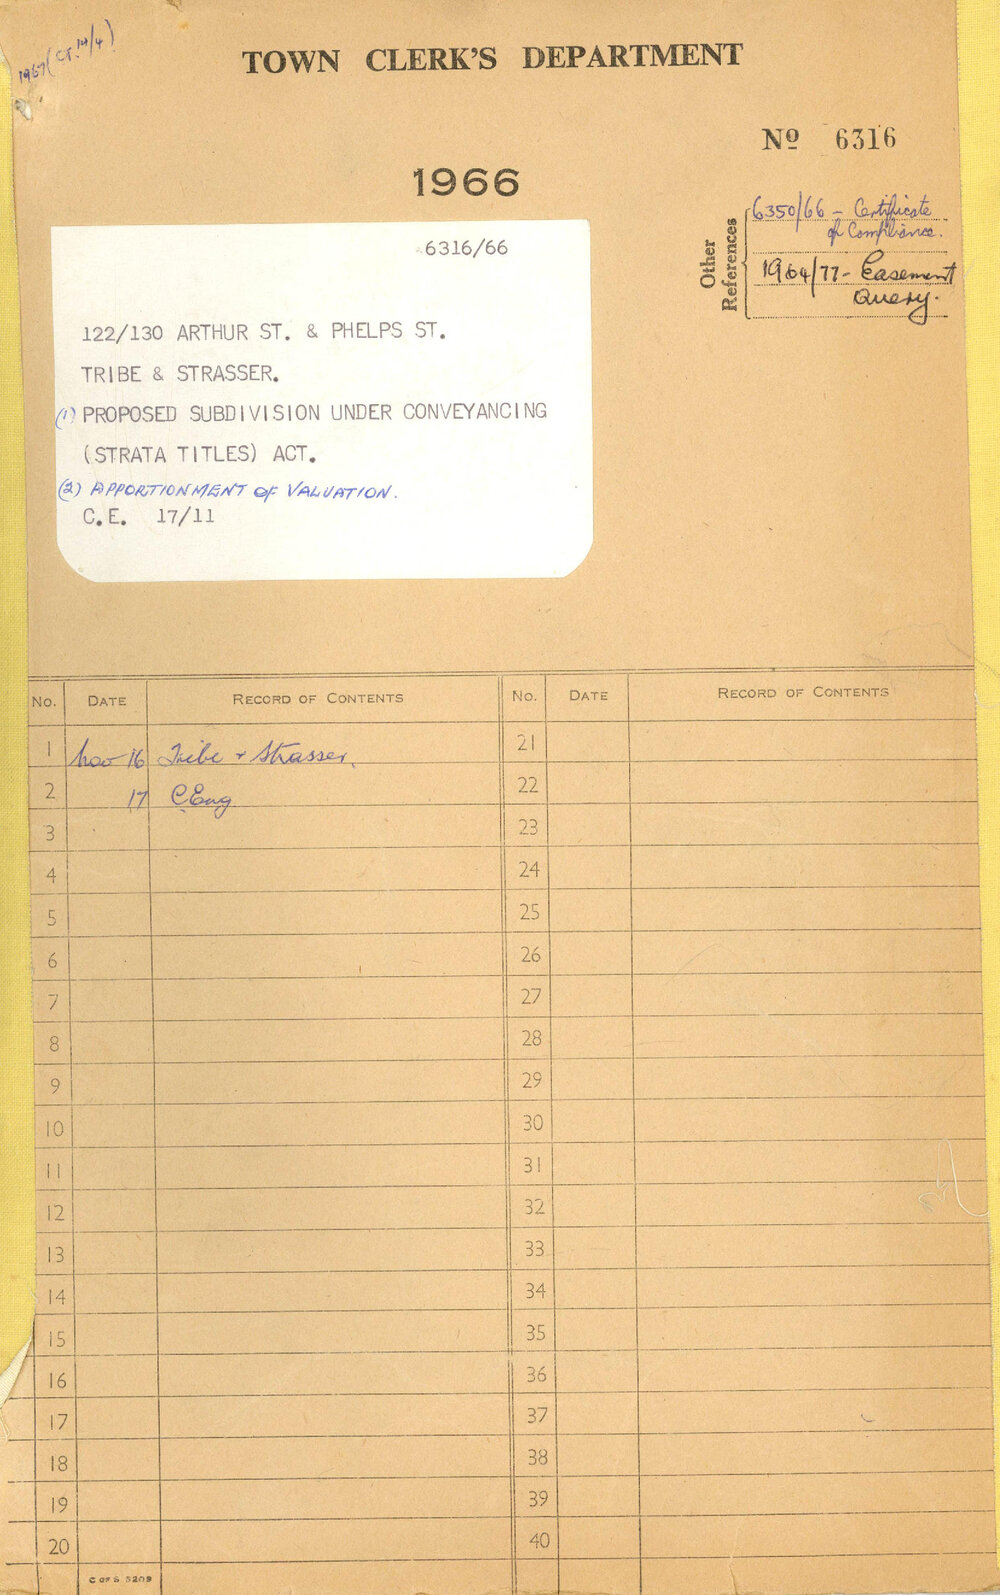 1967 (CT. 14/4)
TOWN CLERK'S DEPARTMENT
Nº 6316
1966
Other References
6350/66 - Certificate
of Compliance.
1964/77 - Easement
Query.
6316/66
122/130 ARTHUR ST. & PHELPS ST.
TRIBE & STRASSER.
(1) PROPOSED SUBDIVISION UNDER CONVEYANCING
(STRATA TITLES) ACT.
(2) APPORTIONMENT OF VALUATION.
C.E. 17/11
No. DATE RECORD OF CONTENTS No. DATE RECORD OF CONTENTS
1 Nov 16 Tribe & Strasser. 21
2 17 C.Eng 22
3 23
4 24
5 25
6 26
7 27
8 28
9 29
10 30
11 31
12 32
13 33
14 34
15 35
16 36
17 37
18 38
19 39
20 40
C OF S 5209